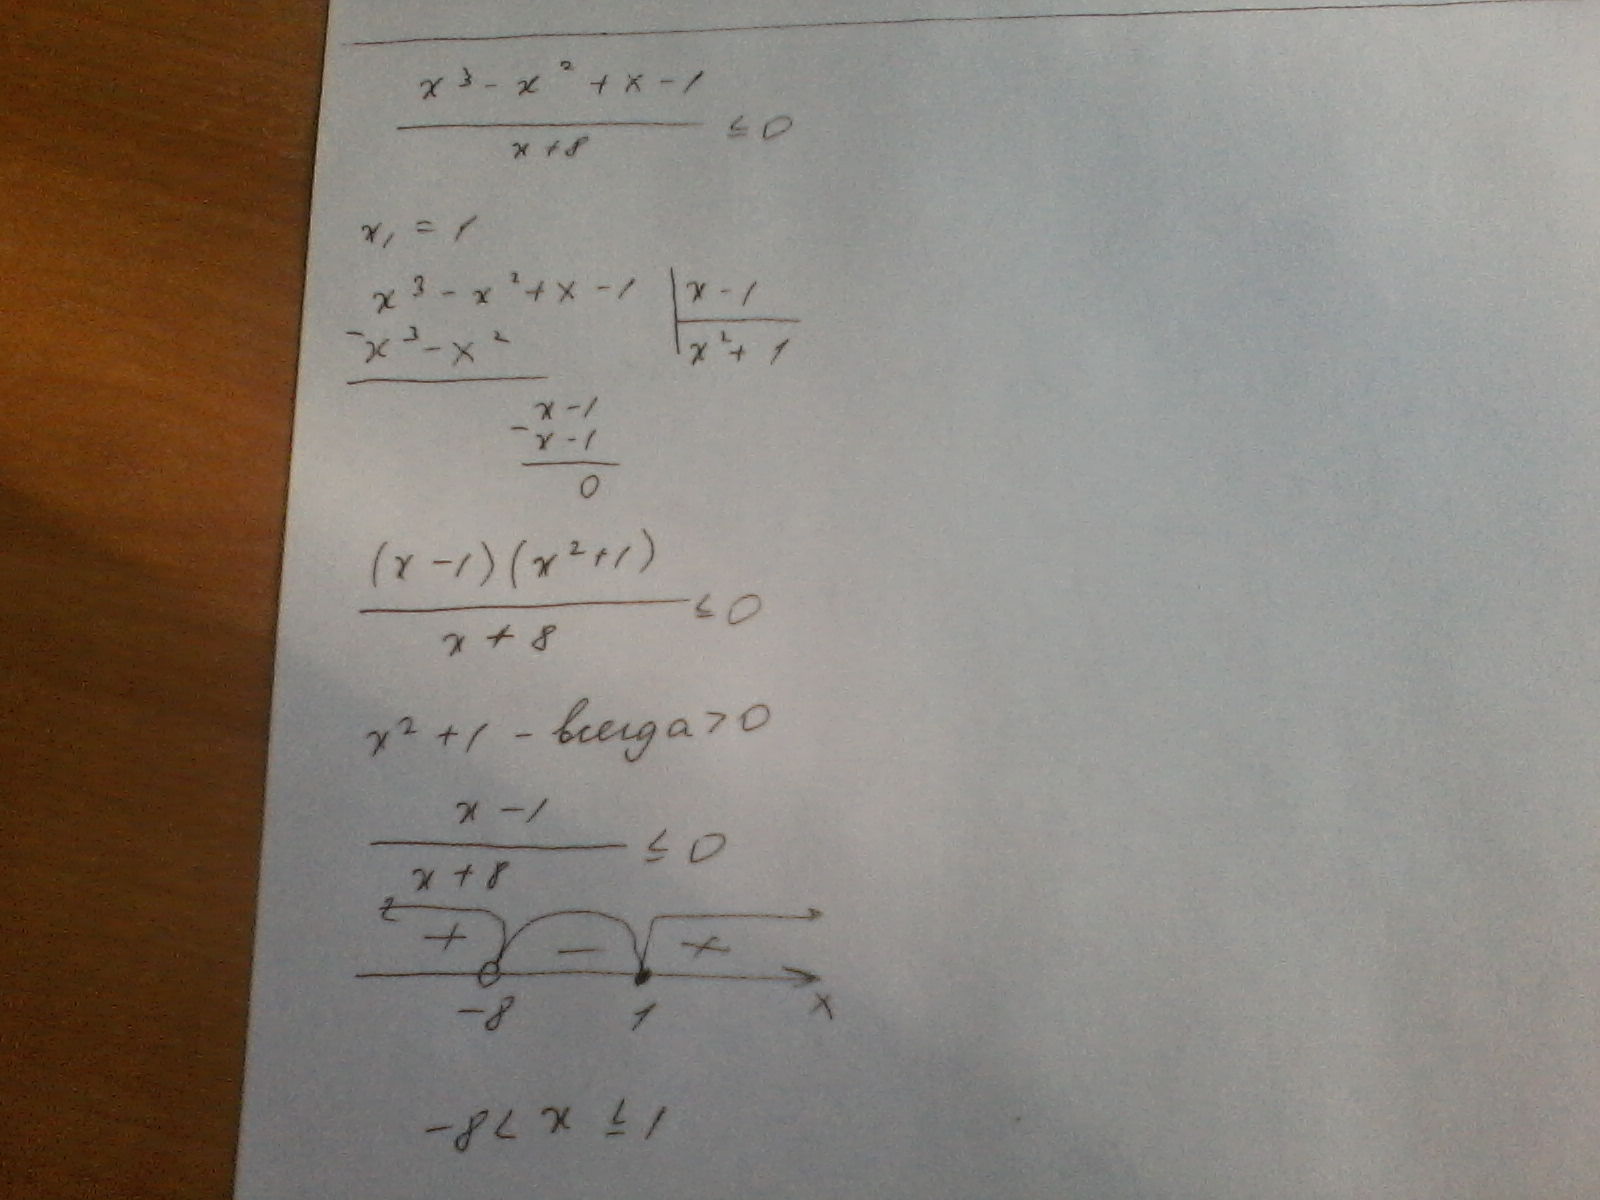 x³ - x² + x - 1
x + 8
≤ 0
x₁ = 1
x³ - x² + x - 1 | x - 1
- x³ - x² | x² + 1
x - 1
- x - 1
0
(x - 1)(x² + 1)
≤ 0
x + 8
x² + 1 - всегда > 0
x - 1
≤ 0
x + 8
+ - +
-8 1 x
-8 < x ≤ 1